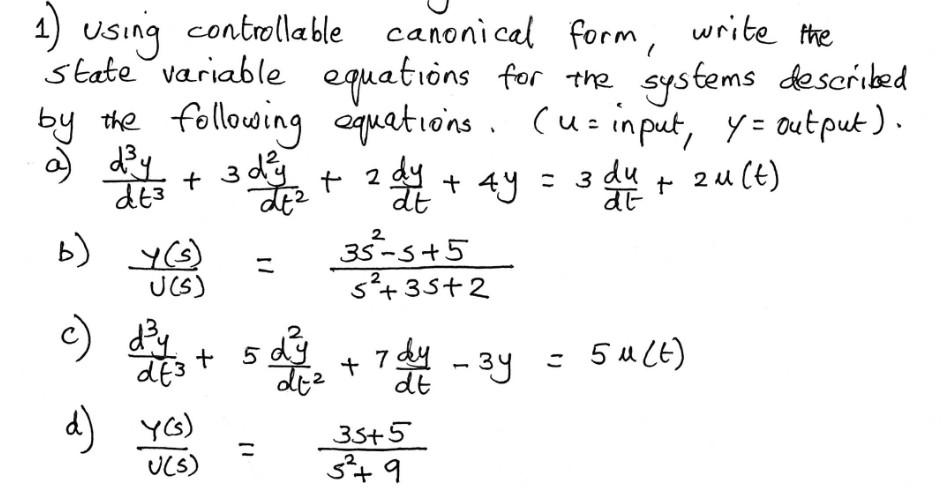 1) using controllable canonical form, write the
state variable equations for the systems described
by the following equations. (u = input, y = output).
a) d³y/dt³ + 3 d²y/dt² + 2 dy/dt + 4y = 3 du/dt + 2u(t)
b) Y(s)/U(s) = 3s²-s+5/s²+3s+2
c) d³y/dt³ + 5 d²y/dt² + 7 dy/dt - 3y = 5u(t)
d) Y(s)/U(s) = 3s+5/s²+9